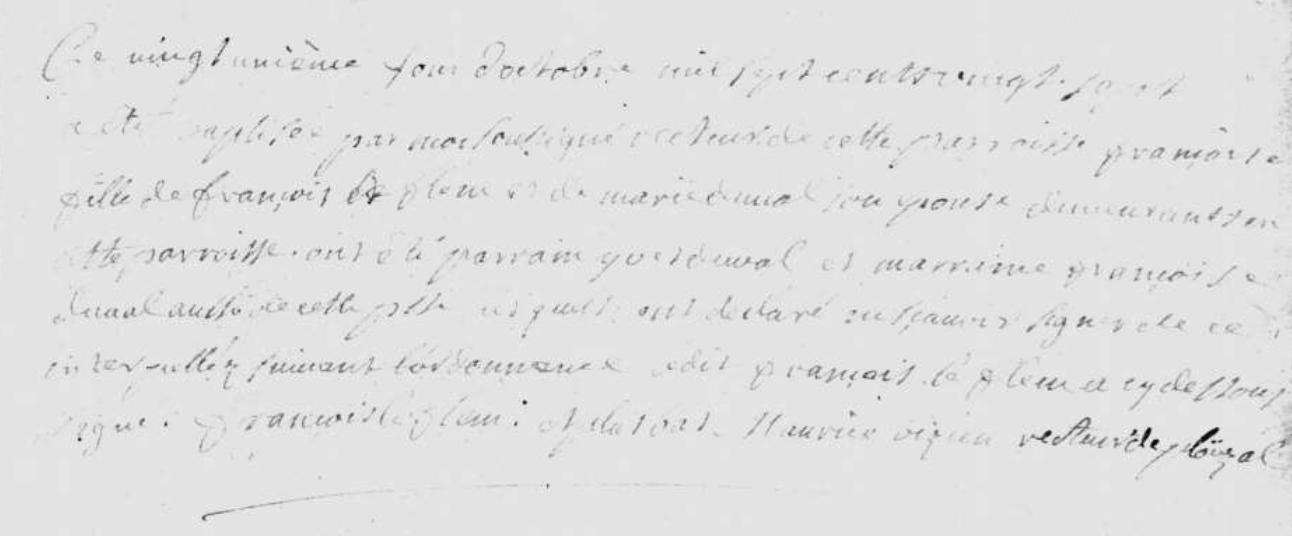 Ce vingt unième jour d'octobre mil sept cents vingt sept
a été baptisée par moi soussigné recteur de cette parroisse françoise
fille de françois le flem et de marie duval son epouse demeurants en
cette parroisse. ont été parrain yves duval et marreine françoise
duval aussi de cette psse lesquels ont declaré ne sçauoir signer de ce
interpellez suiuant l'ordonnance ledit françois le flem a cy dessous
signé. françois le flem. et plus bas. Maurice recteur de ploüzal